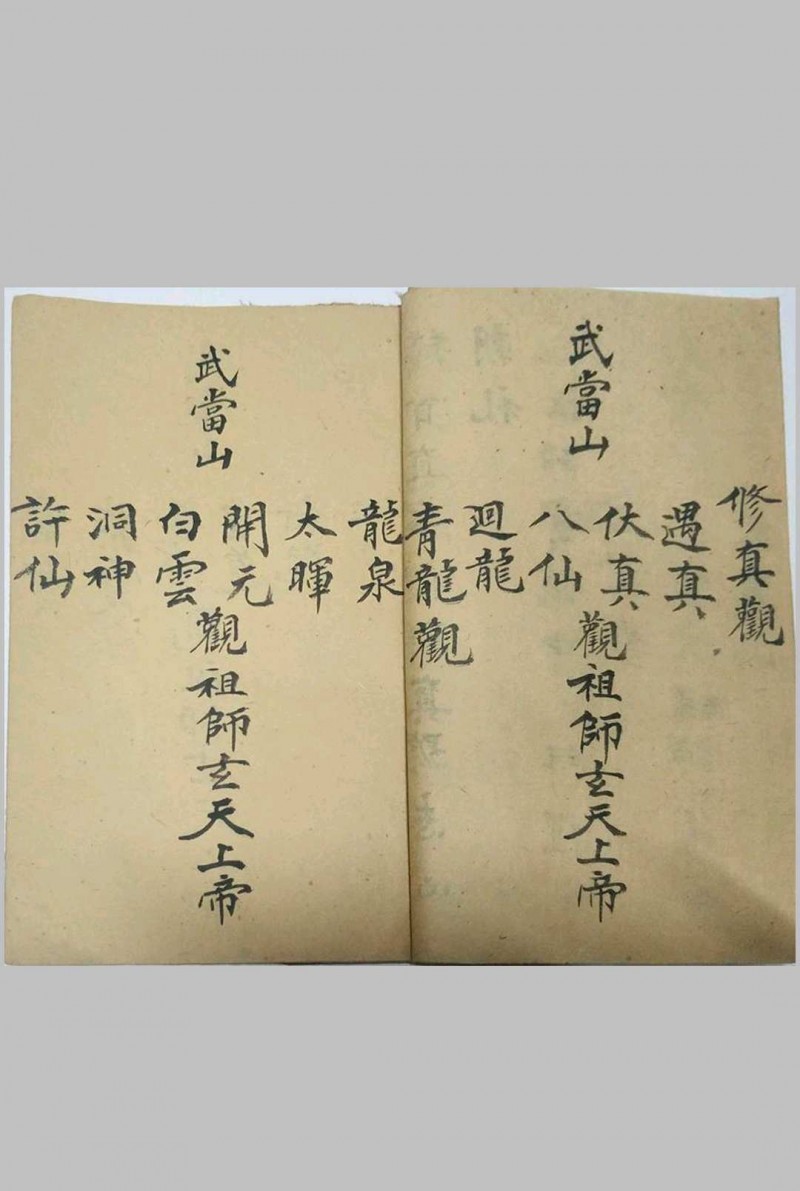 武當山
修真觀
遇真
伏真
八仙
迴龍
青龍觀
觀祖師玄天上帝
武當山
龍泉
太暉
開元
白雲
洞神
許仙
觀祖師玄天上帝